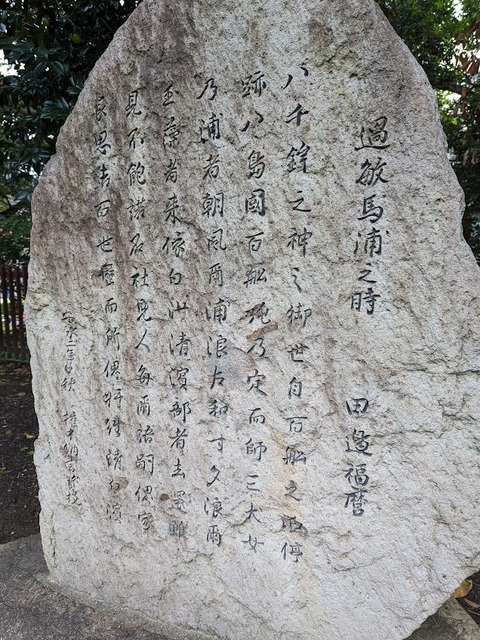 過敏馬浦之時 田邊福麿
八千鋒之神之御世自百舩之泊停
跡八島國百舩純乃定而師三犬女
乃浦者朝風爾浦浪左和寸夕浪爾
玉藻者来依白沙清濱部者去還雖
見不飽諾石社見人每爾語嗣偲家
良思吉百世歷而所偲将往清白濱